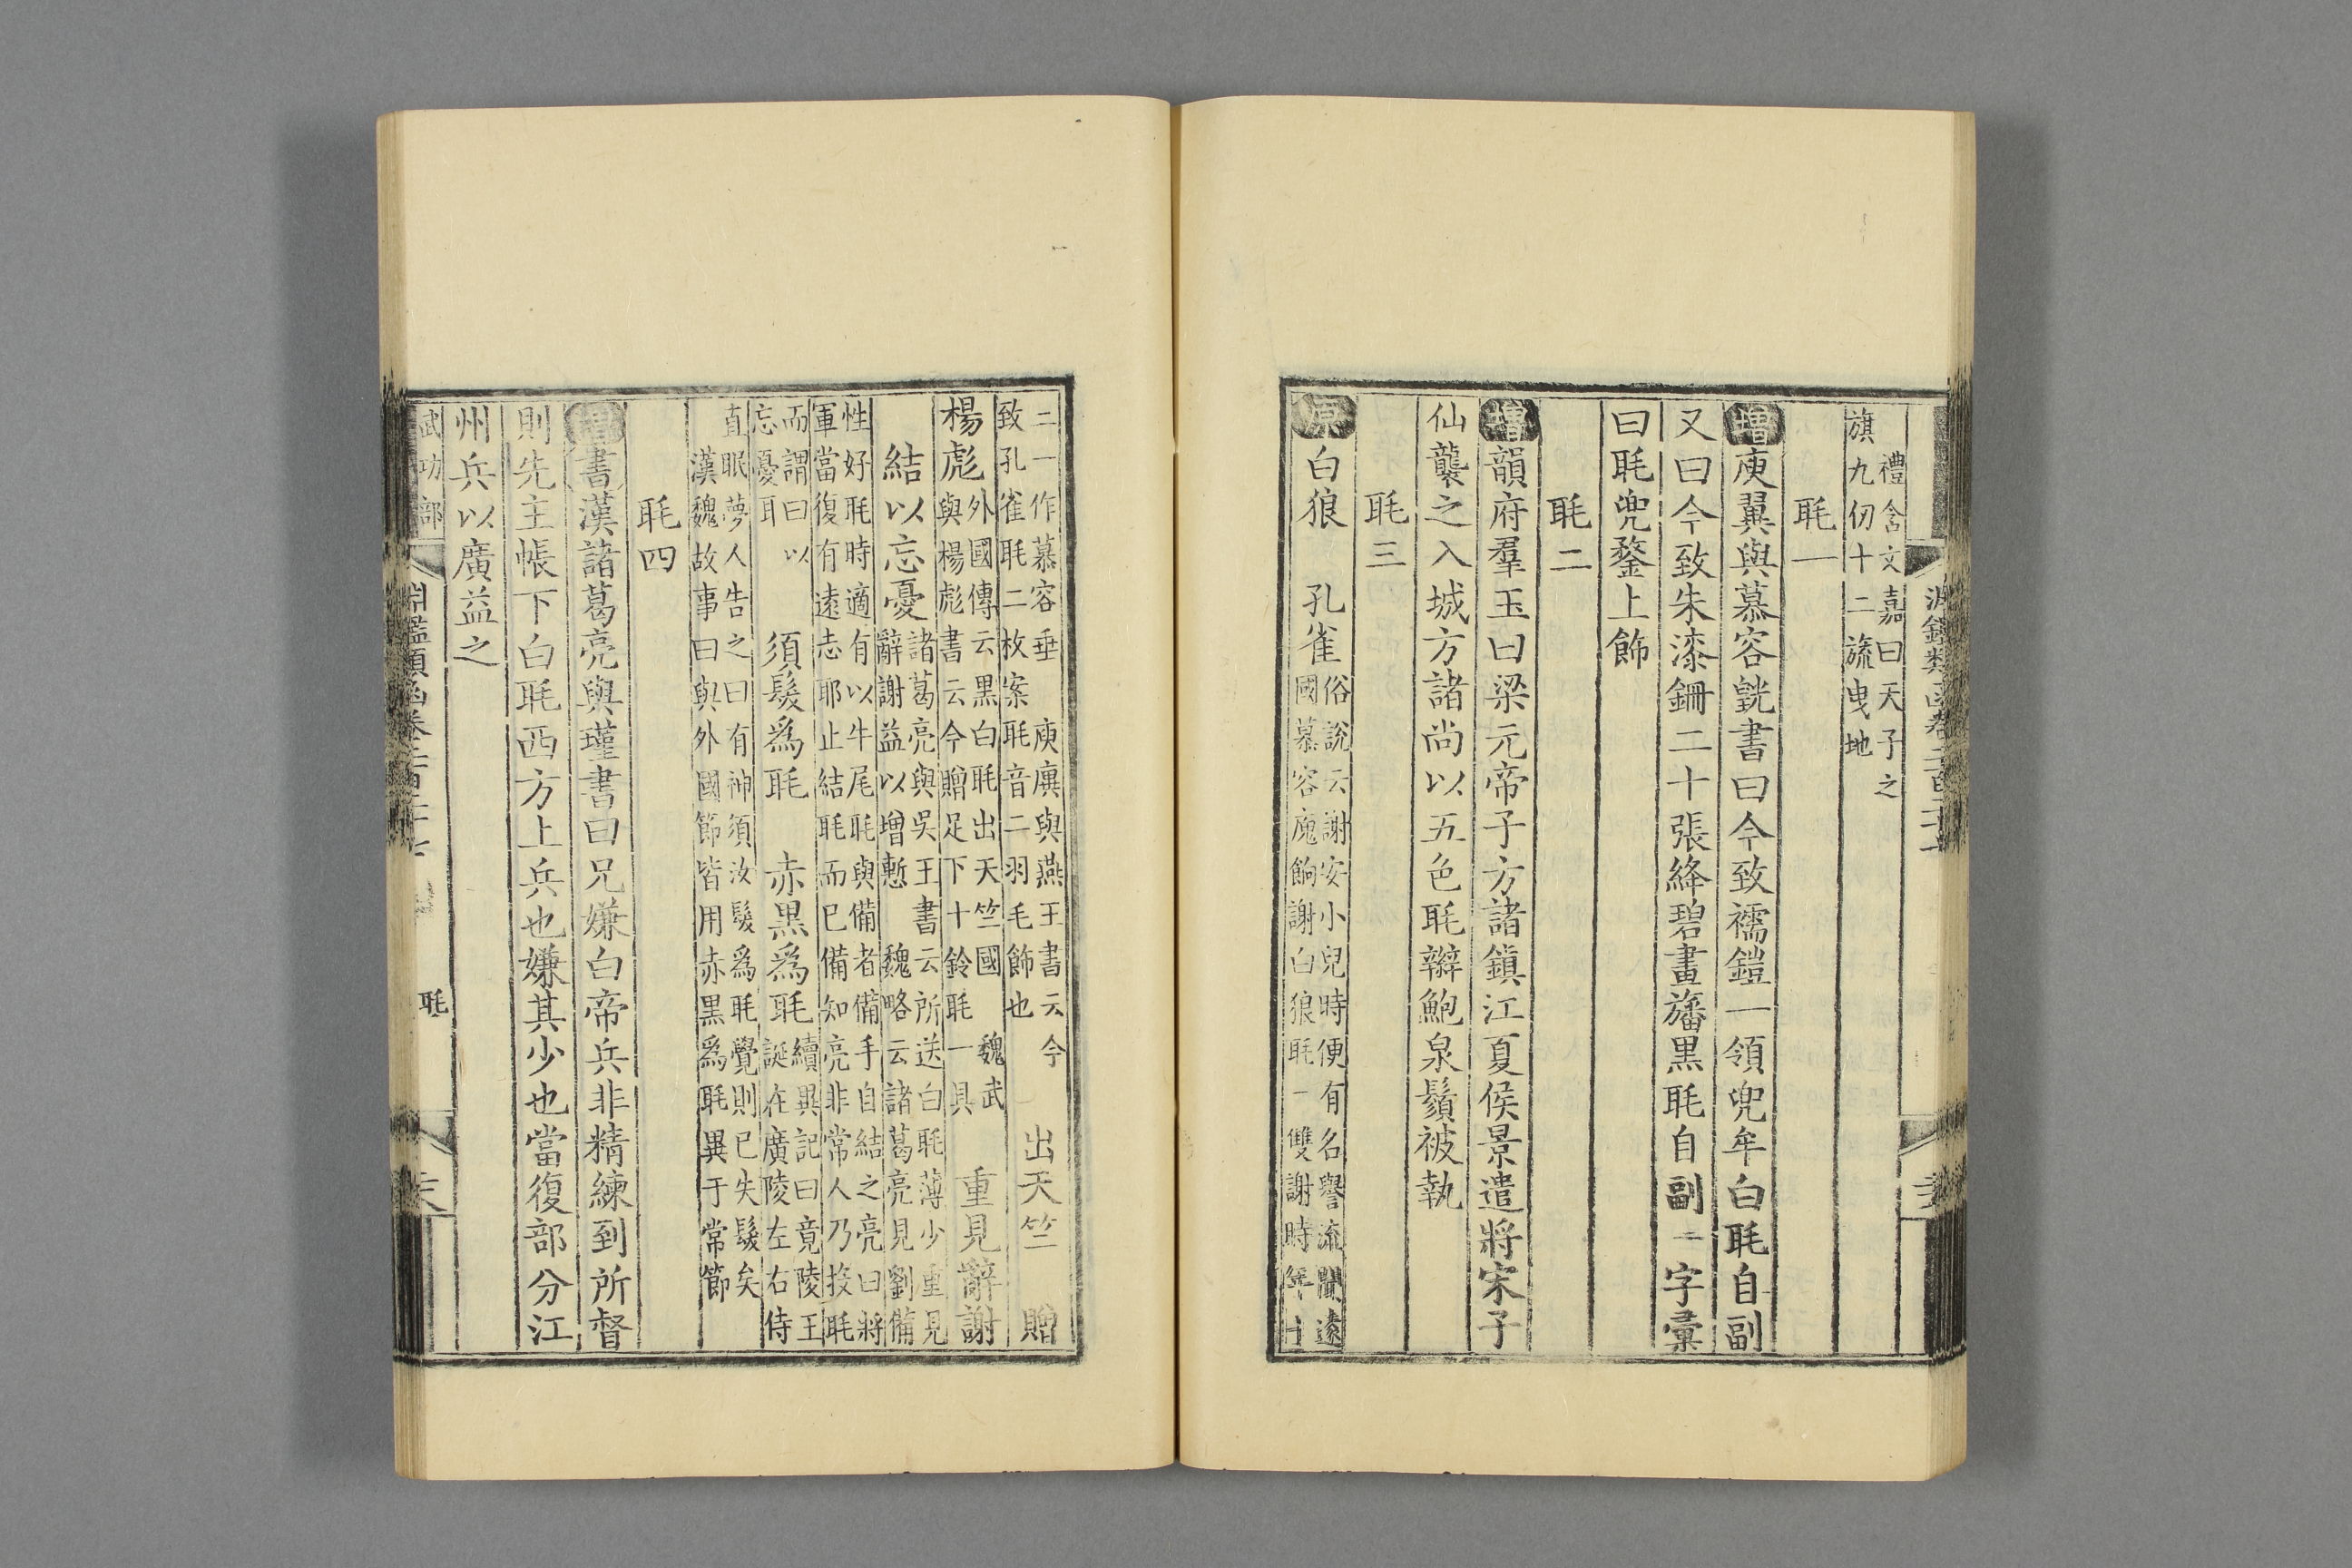 禮含文嘉曰天子之
旗九仞十二旒曳地
毦一
增庾翼與慕容皝書曰今致襦鎧一領兜牟白毦自副
又曰今致朱漆鉀二十張絳碧畫旛黑毦自副 字彙
曰毦兜鍪上飾
毦二
增韻府羣玉曰梁元帝子方諸鎮江夏侯景遣將宋子
仙襲之入城方諸尚以五色毦辮鮑泉鬚被執
毦三
原白狼 孔雀
俗說云謝安小兒時便有名譽流聞遠
國慕容廆餉謝白狼毦一雙謝時年十
二一作慕容垂 庾廙與燕王書云今
致孔雀毦二枚案毦音二羽毛飾也
出天竺 贈
楊彪
外國傳云黑白毦出天竺國 魏武
與楊彪書云今贈足下十鈴毦一具
重見辭謝
結以忘憂
諸葛亮與吳王書云所送白毦薄少重見
辭謝益以增慙 魏略云諸葛亮見劉備
性好毦時適有以牛尾毦與備者備手自結之亮曰將
軍當復有遠志耶止結毦而已備知亮非常人乃投毦
而謂曰以
忘憂耳
須髮爲毦 赤黑爲毦
續異記曰竟陵王
誕在廣陵左右侍
直眠夢人告之曰有神須汝髮爲毦覺則已失髮矣
漢魏故事曰與外國節皆用赤黑爲毦異于常節
毦四
增書漢諸葛亮與瑾書曰兄嫌白帝兵非精練到所督
則先主帳下白毦西方上兵也嫌其少也當復部分江
州兵以廣益之
武功部
淵鑑類函卷二百二十
毦